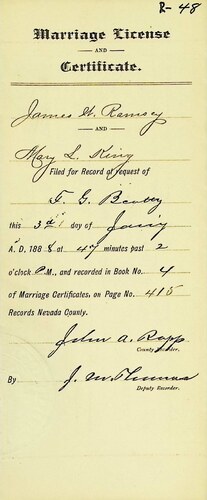 R-48
Marriage License
AND
Certificate.
James W. Ramsey
AND
Mary L. King
Filed for Record at request of
F. G. Beatty
this 3d day of
A. D. 1888 at 47 minutes past 2
o'clock P.M., and recorded in Book No. 4
of Marriage Certificates, on Page No. 415
Records Nevada County.
John A. Rapp
County Recorder.
By J. M. Thomas
Deputy Recorder.